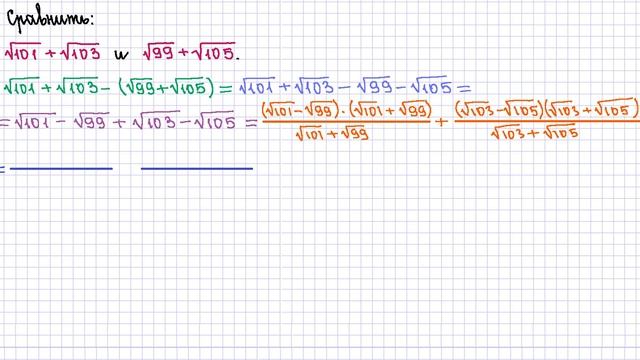 Сравнить:
√101 + √103 и √99 + √105.
√101 + √103 − (√99 + √105) = √101 + √103 − √99 − √105 =
= √101 − √99 + √103 − √105 = (√101 − √99) · (√101 + √99) / √101 + √99 + (√103 − √105)(√103 + √105) / √103 + √105
=